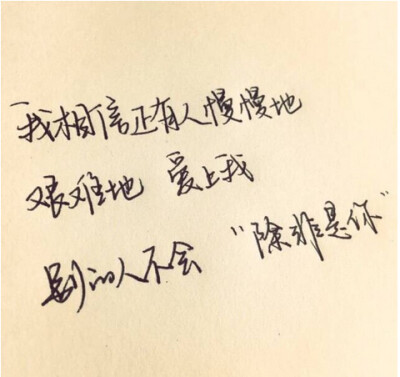 我相信正有人慢慢地
艰难地 爱上我
别的人不会 “除非是你”